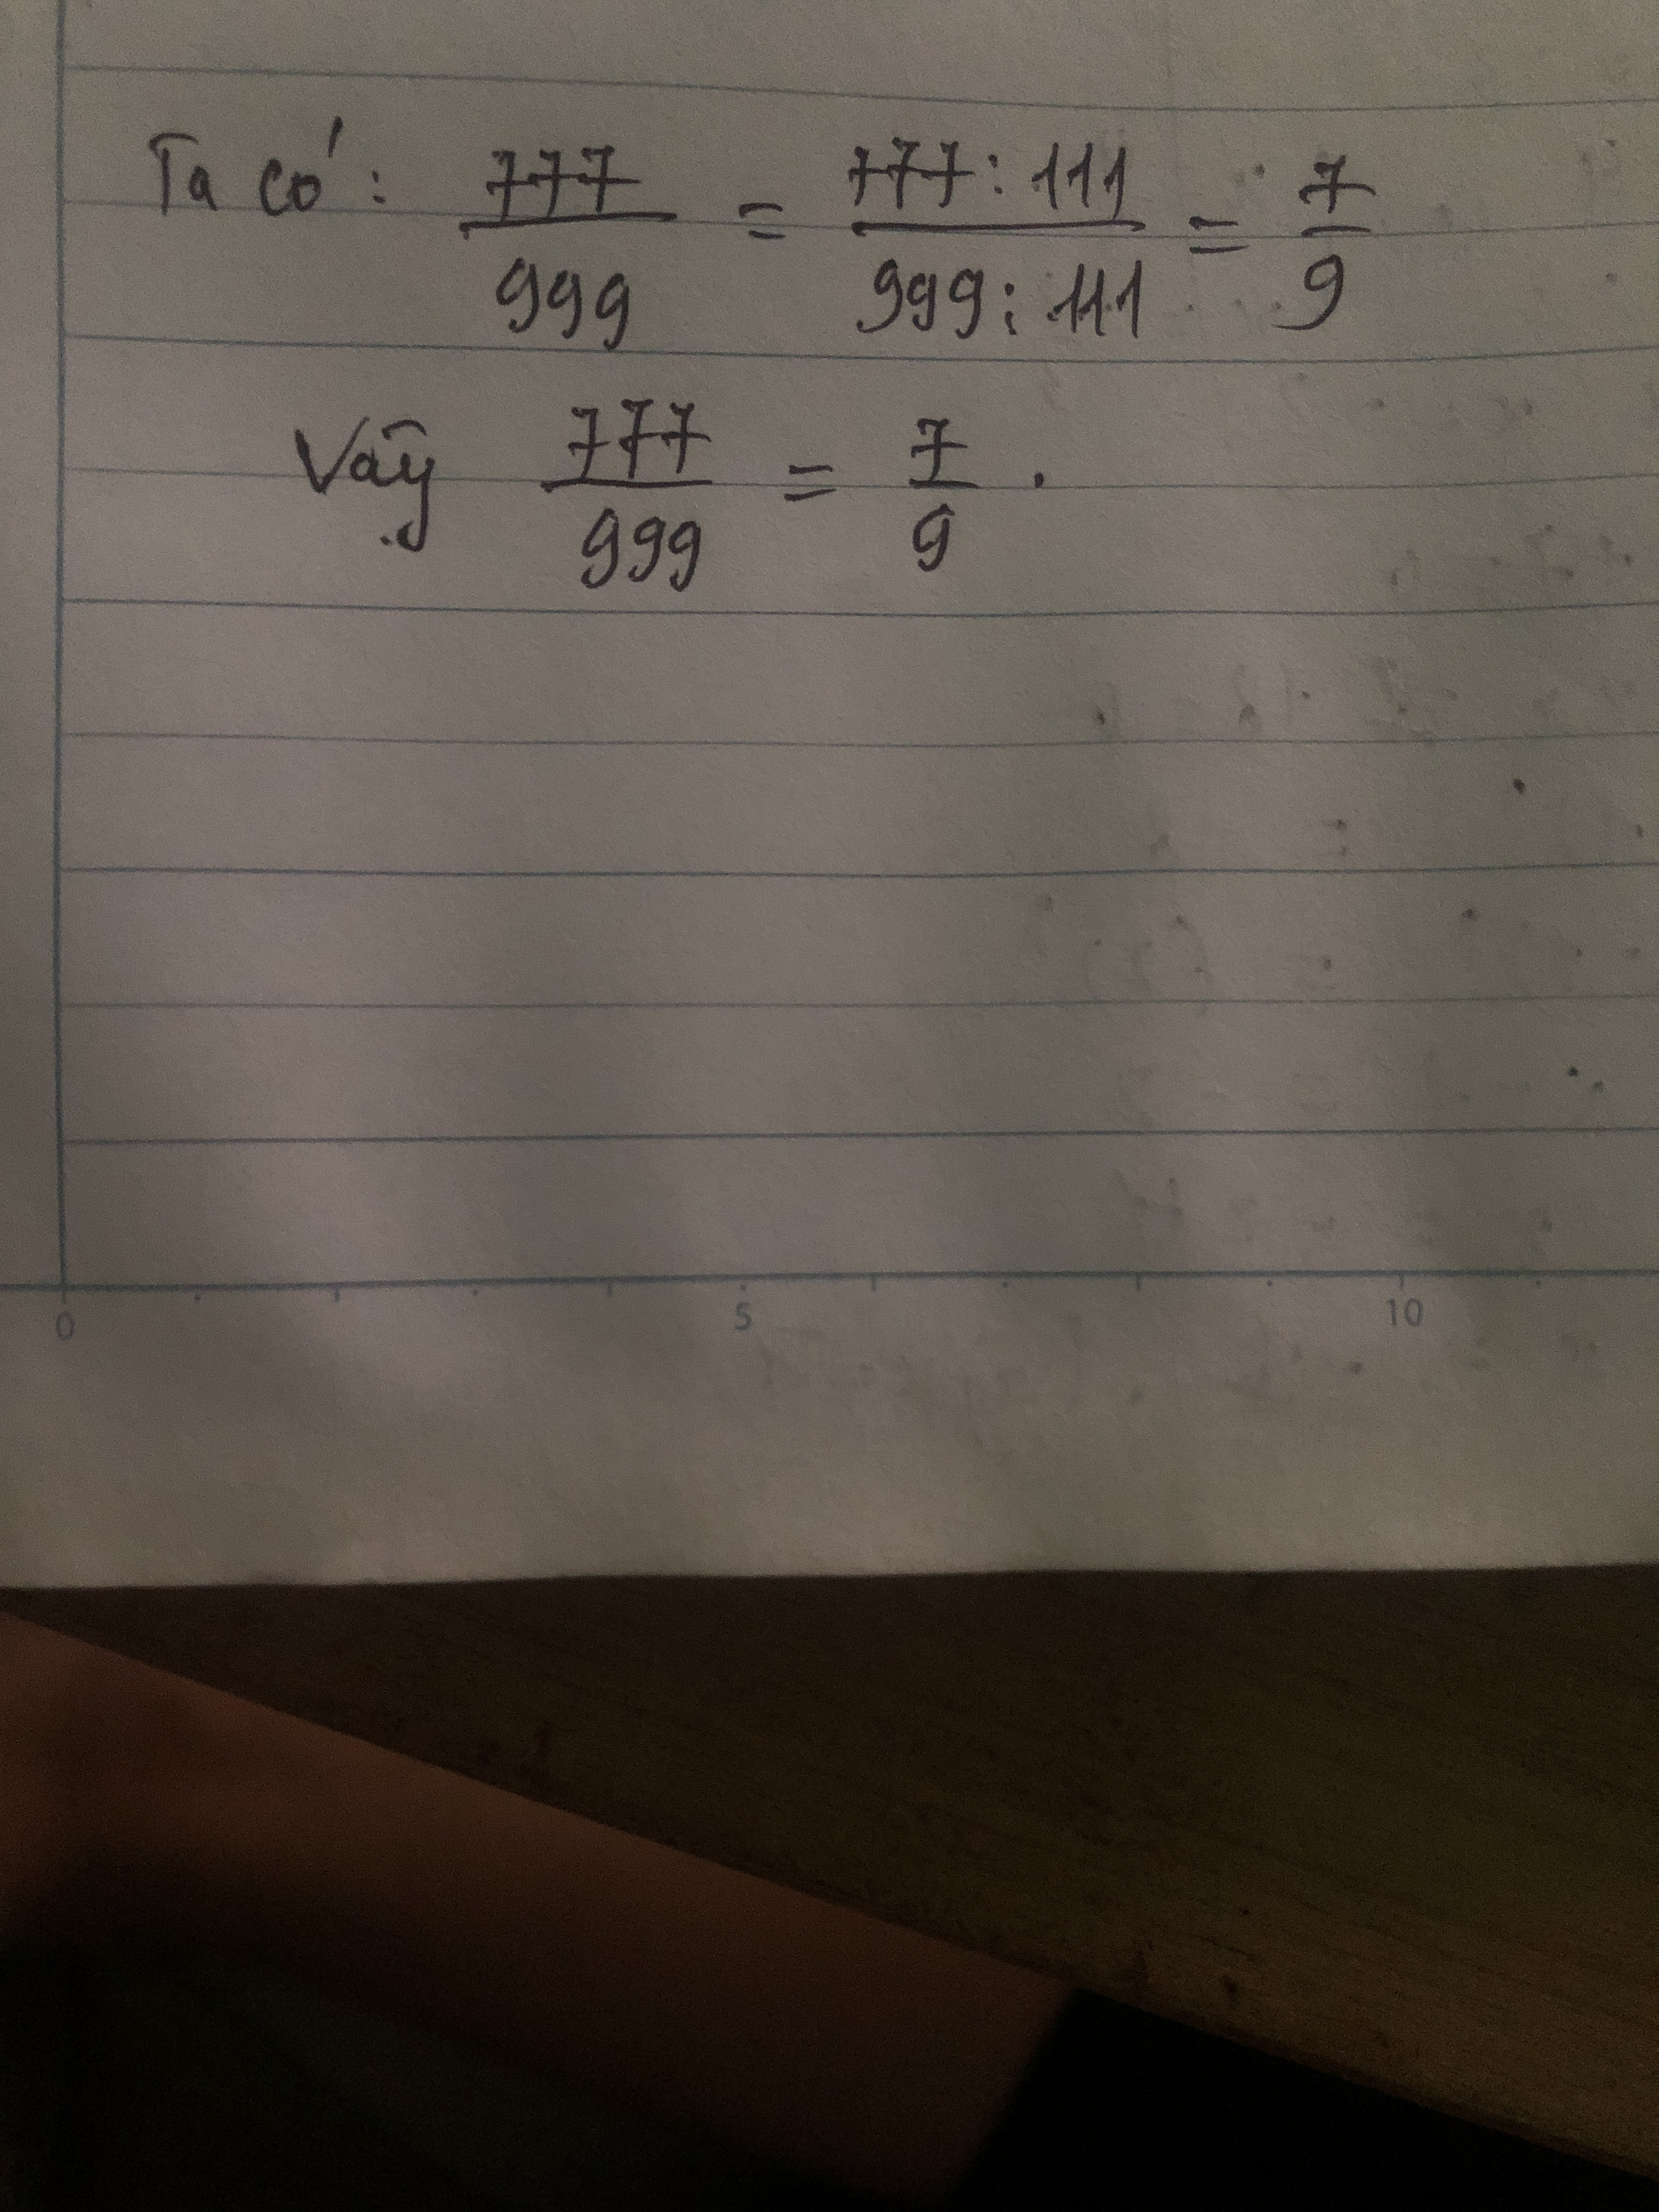 Ta có: 777/999 = 777:111/999:111 = 7/9
Vậy 777/999 = 7/9.
0 5 10